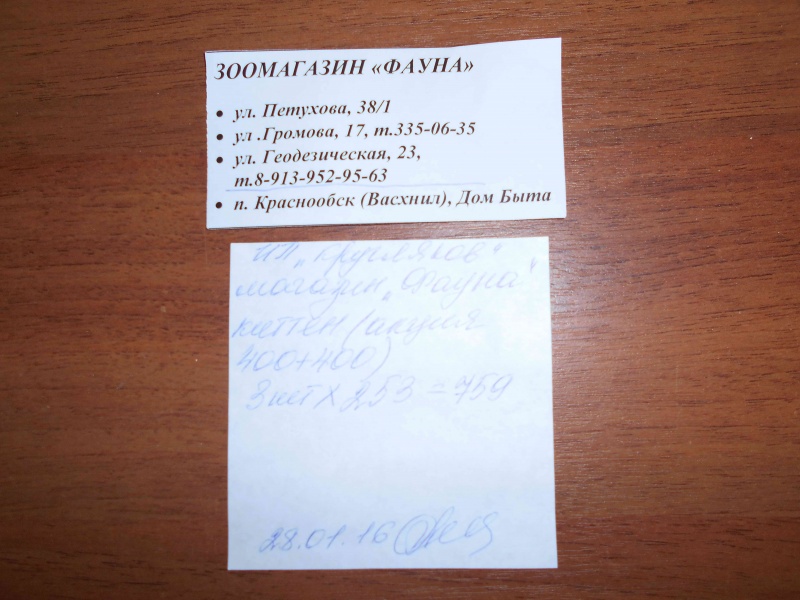 ЗООМАГАЗИН «ФАУНА»
• ул. Петухова, 38/1
• ул .Громова, 17, т.335-06-35
• ул. Геодезическая, 23,
т.8-913-952-95-63
• п. Краснообск (Васхнил), Дом Быта
ИП „Кругляков"
магазин „Фауна"
киттен (акция
400+400)
3 шт х 253 = 759
28.01.16